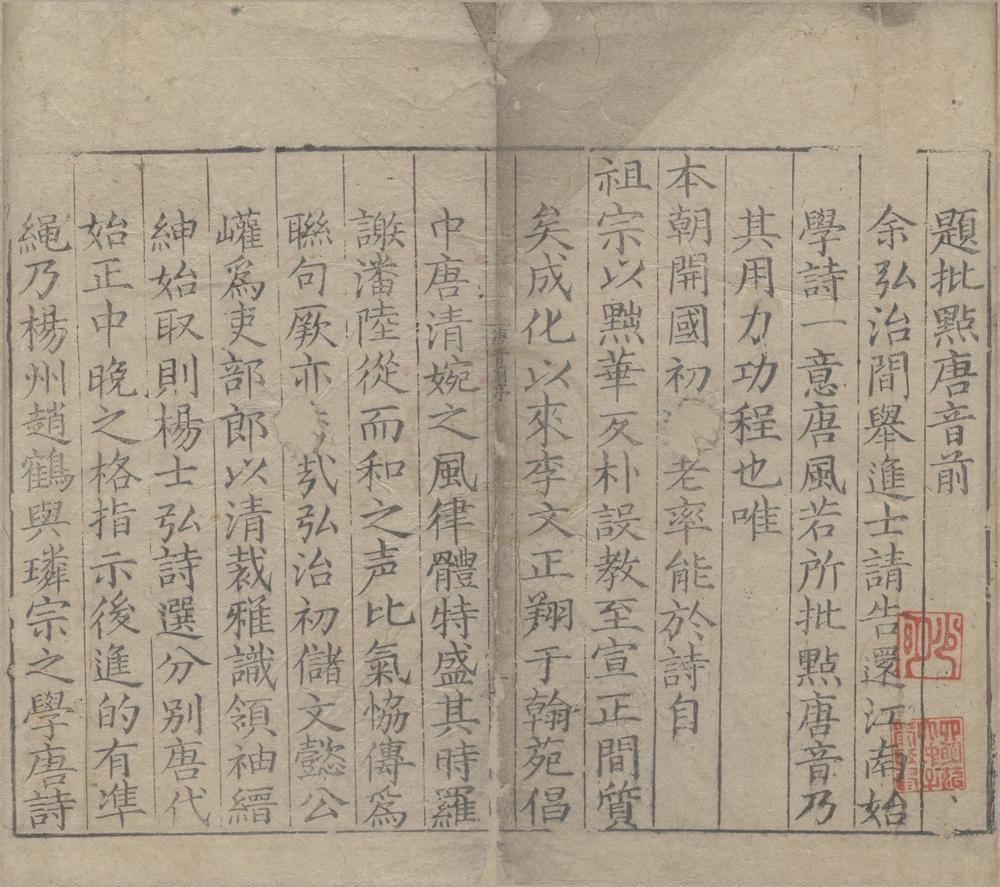 題批點唐音前
余弘治間舉進士請告還江南始
學詩一意唐風若所批點唐音乃
其用力功程也唯
本朝開國初老率能於詩自
祖宗以黜華反朴設教至宣正間質
矣成化以來李文正翔于翰苑倡
中唐清婉之風律體特盛其時羅
謝潘陸從而和之声比氣恊傳為
聯句厥亦弘治初儲文懿公
巏爲吏部郎以清裁雅識領袖縉
紳始取則楊士弘詩選分別唐代
始正中晚之格指示後進的有凖
繩乃楊州趙鶴與璘宗之學唐詩